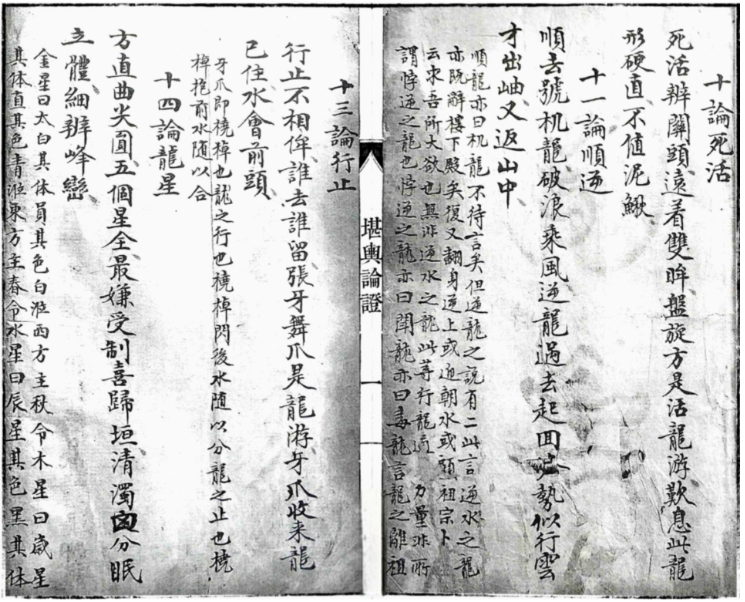 十論死活
死活辨關頭遠着雙眸盤旋方是活龍游歎息此龍
形硬直不值泥鰍
十一論順逆
順去號机龍破浪乘風逆龍過去起回 勢似行雲
才出岫又返山中
順龍亦曰机龍不待言矣但逆龍之説有二此言逆水之龍
亦既辭樓下殿矣復又翻身逆上或迎朝水或顧祖宗卜
云求吾所大欲也無非逆水之龍此等行龍 力量非所
謂悖逆之龍也悖逆之龍亦曰閗龍亦曰毒龍言龍之離祖
堪輿論證
十三論行止
行止不相侔誰去誰留張牙舞爪是龍游牙爪收来龍
已住水會前頭
牙爪即橈棹也龍之行也橈棹閃後水随以分龍之止也橈
棹抱前水随以合
十四論龍星
方直曲尖圓五個星全最嫌受制喜歸垣清濁 分眠
立體細辨峰巒
金星曰太白其体員其色白位西方主秋令木星曰歲星
其体直其色青位東方主春令水星曰辰星其色黑其体